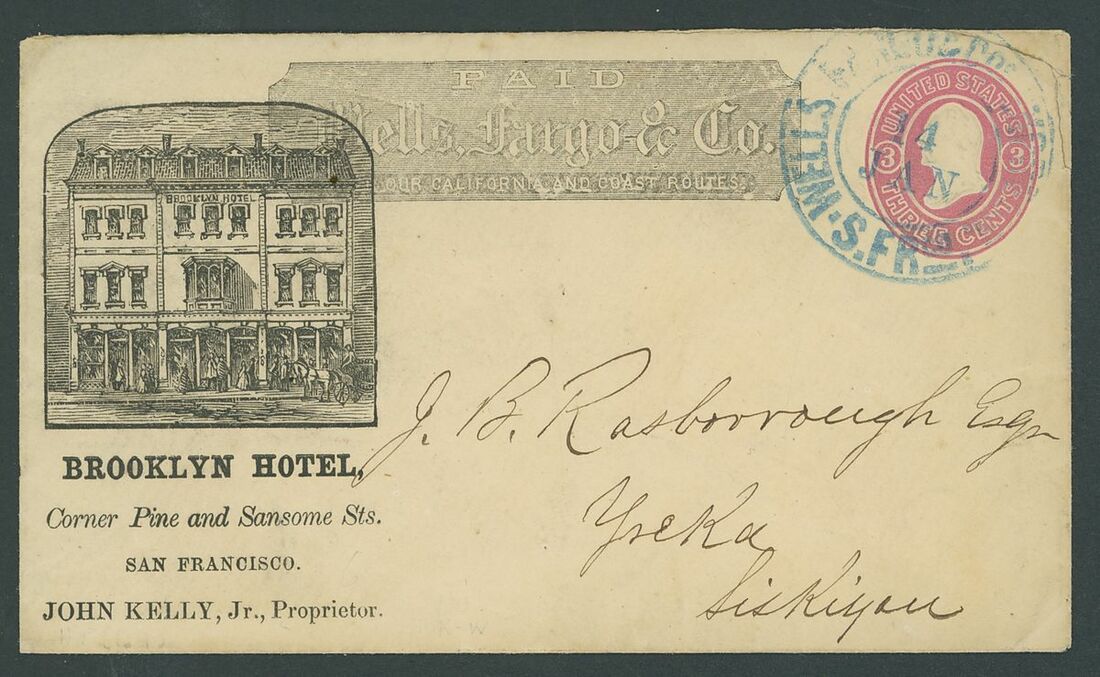 PAID
Wells, Fargo & Co.
OUR CALIFORNIA AND COAST ROUTES.
UNITED STATES
3 3
THREE CENTS
WELLS
14
JAN
S.FR
BROOKLYN HOTEL
BROOKLYN HOTEL,
Corner Pine and Sansome Sts.
SAN FRANCISCO.
JOHN KELLY, Jr., Proprietor.
J. B. Rosborrough Esqr
Yreka
Siskiyou